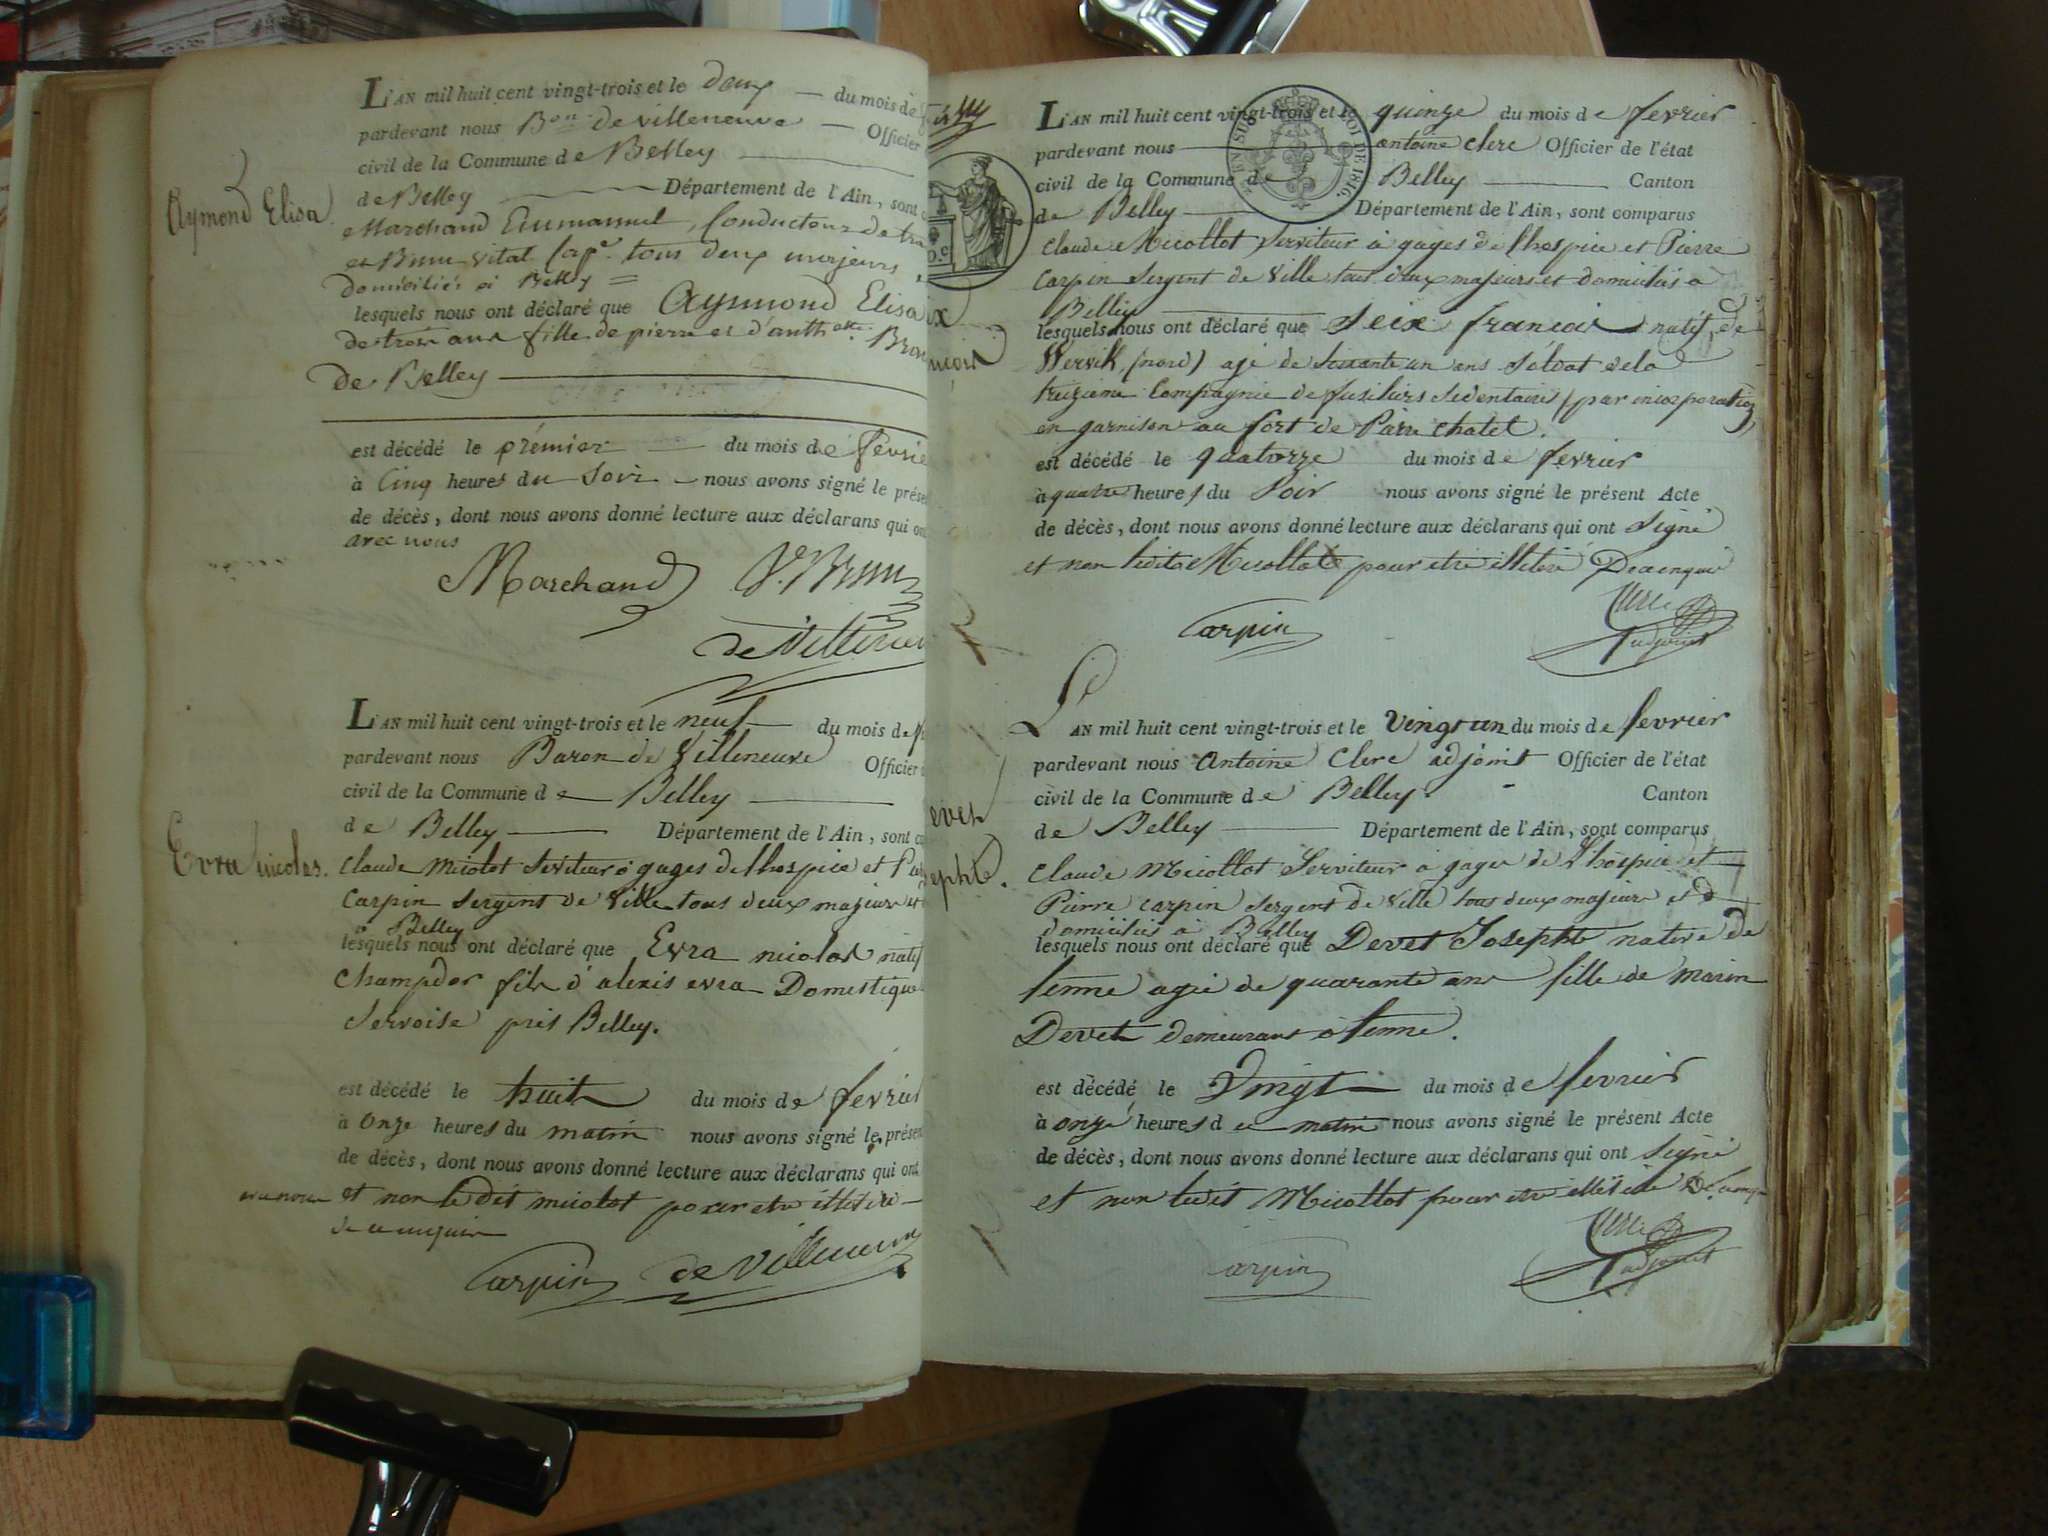 Aymond Elisa.
L'AN mil huit cent vingt-trois et le deux du mois de
pardevant nous Bon de villeneuve Officier
civil de la Commune de Belley
de Belley Département de l'Ain, sont
Marchand Emmanuel, Conducteur de
et Brun vital tous deux majeurs,
domiciliés à Belley
lesquels nous ont déclaré que Aymond Elisa
de trois ans fille de pierre et d'anth
de Belley
est décédé le premier du mois de
à Cinq heures du Soir nous avons signé le
de décès, dont nous avons donné lecture aux déclarans qui
avec nous
Marchand V. Brun
de Villeneu
Evra nicolas.
L'AN mil huit cent vingt-trois et le neuf du mois de
pardevant nous Baron de Villeneuve Officier
civil de la Commune de Belley
de Belley Département de l'Ain, sont
Claude Micolot Serviteur à gages de lhospice et
Carpin Sergent de Ville tous deux majeurs et
à Belley
lesquels nous ont déclaré que Evra nicolas natif
Champdor fils d'alexis evra Domestique
Servoise près Belley.
est décédé le huit du mois de fevrier
à Onze heures du matin nous avons signé le
de décès, dont nous avons donné lecture aux déclarans qui ont
avec nous et non le dit micolot pour etre illitere
de ce enquis
Carpin de Villeneuve
L'AN mil huit cent vingt-trois et le quinze du mois de fevrier
pardevant nous antoine clerc Officier de l'état
civil de la Commune de Belley Canton
de Belley Département de l'Ain, sont comparus
Claude Micollot Serviteur à gages de lhospice et Pierre
Carpin Sergent de Ville tous deux majeurs et domiciliés à
Belley
lesquels nous ont déclaré que Seix francois natif de
Wervik (nord) agé de Soixante un ans Soldat de la
treizieme Compagnie de fusiliers Sedentaires (par incorporation)
en garnison au fort de Pierre chatel.
est décédé le quatorze du mois de fevrier
à quatre heures du Soir nous avons signé le présent Acte
de décès, dont nous avons donné lecture aux déclarans qui ont Signé
et non ledit Micollot pour etre illiteré De ce enquis
Carpin
Clerc
adjoint
L'AN mil huit cent vingt-trois et le Vingt un du mois de fevrier
pardevant nous Antoine Clerc adjoint Officier de l'état
civil de la Commune de Belley Canton
de Belley Département de l'Ain, sont comparus
Claude Micollot Serviteur à gages de L'hospice et
Pierre Carpin Sergent de Ville tous deux majeurs et
domiciliés à Belley
lesquels nous ont déclaré que Devet Josephte native de
Yenne agée de quarante ans fille de Marin
Devet demeurant à Yenne.
est décédé le Vingt du mois de fevrier
à onze heures du matin nous avons signé le présent Acte
de décès, dont nous avons donné lecture aux déclarans qui ont Signé
et non ledit Micollot pour etre illiteré De ce enquis
Carpin
Clerc
adjoint